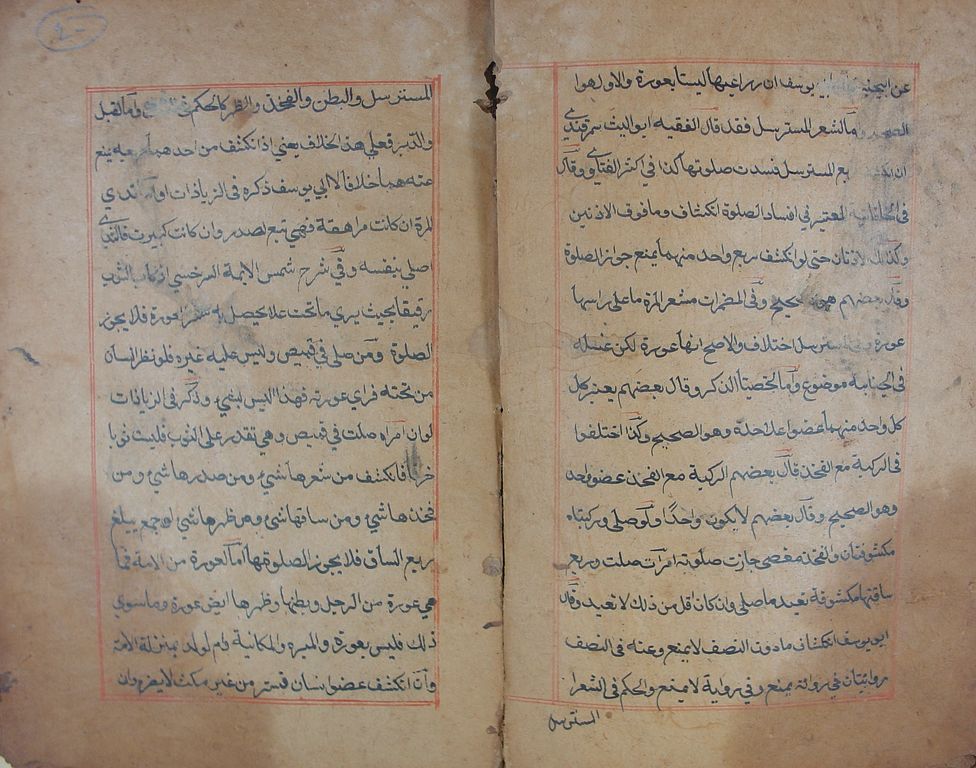 يوسف ان ذراعيها ليستا بعورة والاول هوا
واما الشعر المسترسل فقد قال الفقيه ابو اليث سمرقندي
ان انكشف ربع المسترسل فسدت صلوتها كذا في اكثر الفتاوي وقال
في المعتبر في افساد الصلوة انكشاف ما فوق الاذنين
وكذلك الاذنان حتى لو انكشف ربع واحد منهما يمنع جواز الصلوة
وقال بعضهم هو صحيح وفي المضمرات شعر المرة ما على راسها
عورة المسترسل اختلاف والاصح انها عورة لكن غسله
في الجنابة موضوع واما الخصيتا الذكر وقال بعضهم يعتبر كل
كل واحد منهما عضوا علاحدة وهو الصحيح وكذا اختلفوا
في الركبة مع الفخذ قال بعضهم الركبة مع الفخذ عضو واحد
وهو الصحيح وقال بعضهم لا يكون واحدا ولو صلى وركبتاه
مكشوفتان والفخذ مغطى جازت صلوته امرات صلت وربع
ساقها مكشوفة تعيد ما صلى وان كان اقل من ذلك لا تعيد وقال
ابو يوسف انكشاف ما دون النصف لا يمنع وعنه في النصف
روايتان في رواية يمنع وفي رواية لا يمنع والحكم في الشعر
المسترسل
٤٠
المسترسل والبطن والفخذ والظهر كالحكم في واما القبل
والدبر فعلى هذا الخلاف يعني اذا انكشف من احدهما ربعه يمنع
عندهما خلافا لابي يوسف ذكره في الزيادات واما ثدي
المرة ان كانت مراهقة فهي تبع لصدر وان كانت كبيرة فالثدي
اصلي بنفسه وفي شرح شمس الايمة السرخسي اذا كان الثوب
رقيقا بحيث يري ما تحت علا يحصل به ستر العورة فلا يجوز
الصلوة ومن صلى في قميص وليس عليه غيره فلو نظر انسان
من تحته فراي عورته فهذا ليس بشيء وذكر في الزيادات
لو ان امراه صلت في قميص وهي تقدر على الثوب فلبست ثوبا
فانكشف من شعرها شيء ومن صدرها شيء ومن
فخذها شيء ومن ساقها شيء ومن ظهرها شيء لو جمع يبلغ
ربع الساق فلا يجوز الصلوة منها اما العورة من الامة فما
هي عورة من الرجل وبطنها وظهرها ايض عورة وما سوى
ذلك فليس بعورة والمدبره والمكاتبة وام لولد بمنزلة الامة
وان انكشف عضو انسان فستر من غير مكث لا يضره وان